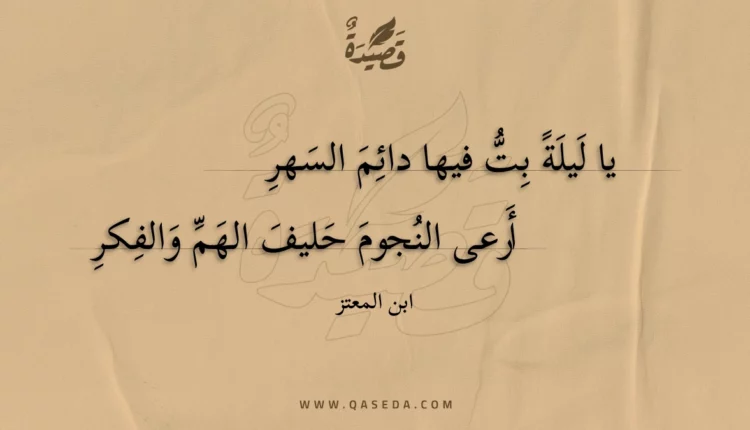 قَصِيدَةٌ
يا لَيلَةً بِتُّ فيها دائِمَ السَهرِ
أَرعى النُجومَ حَليفَ الهَمِّ وَالفِكرِ
ابن المعتز
WWW.QASEDA.COM